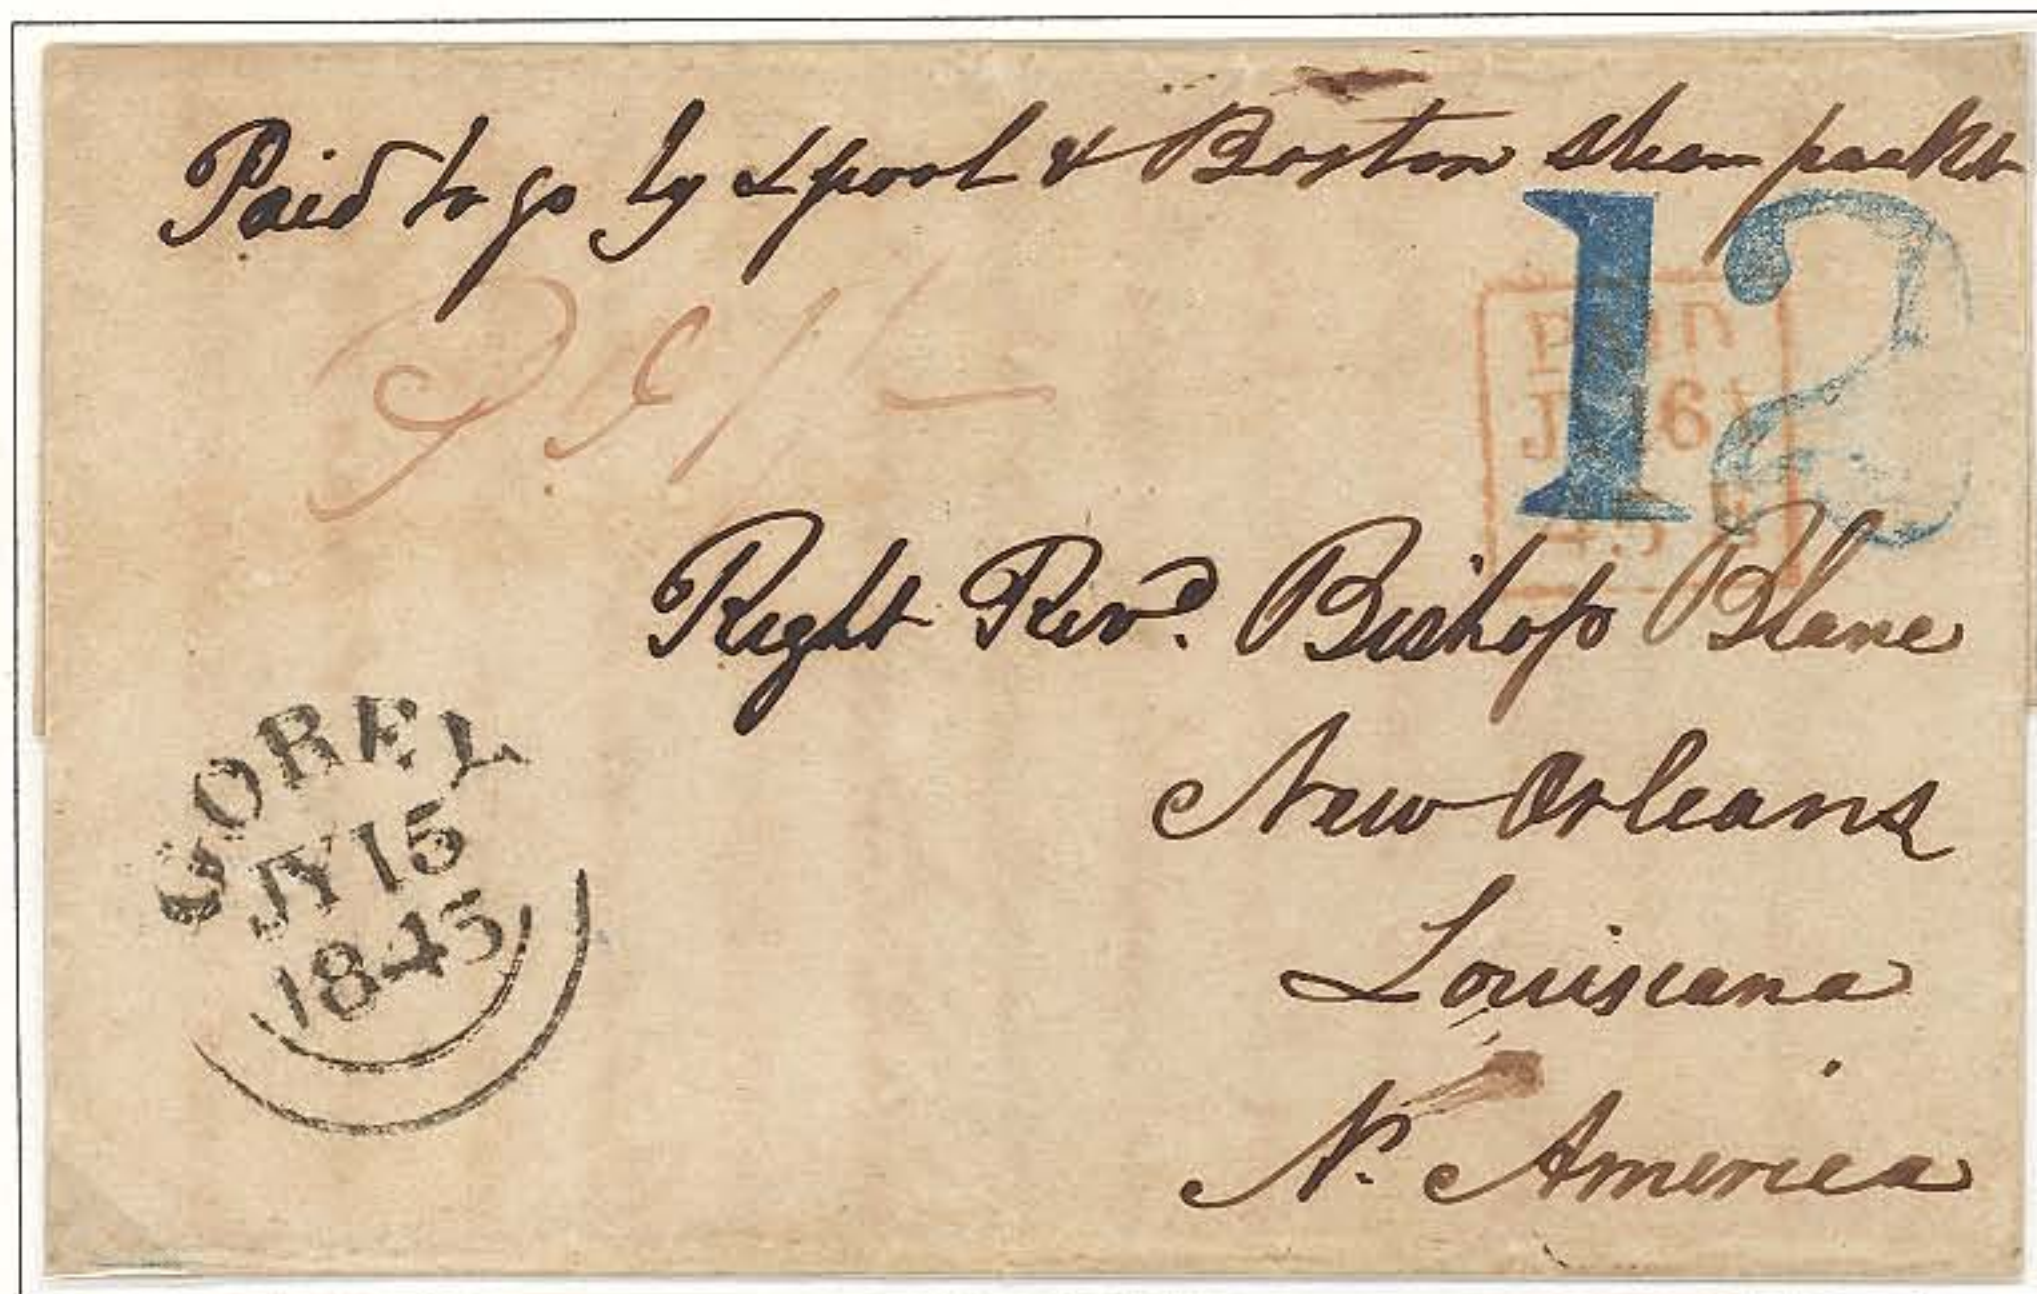 Paid to go by Lpool & Boston steam packet
12
PAID
16
Right Revd. Bishop Blanc
New Orleans
Louisiana
N. America
GOREY
JY 15
1845